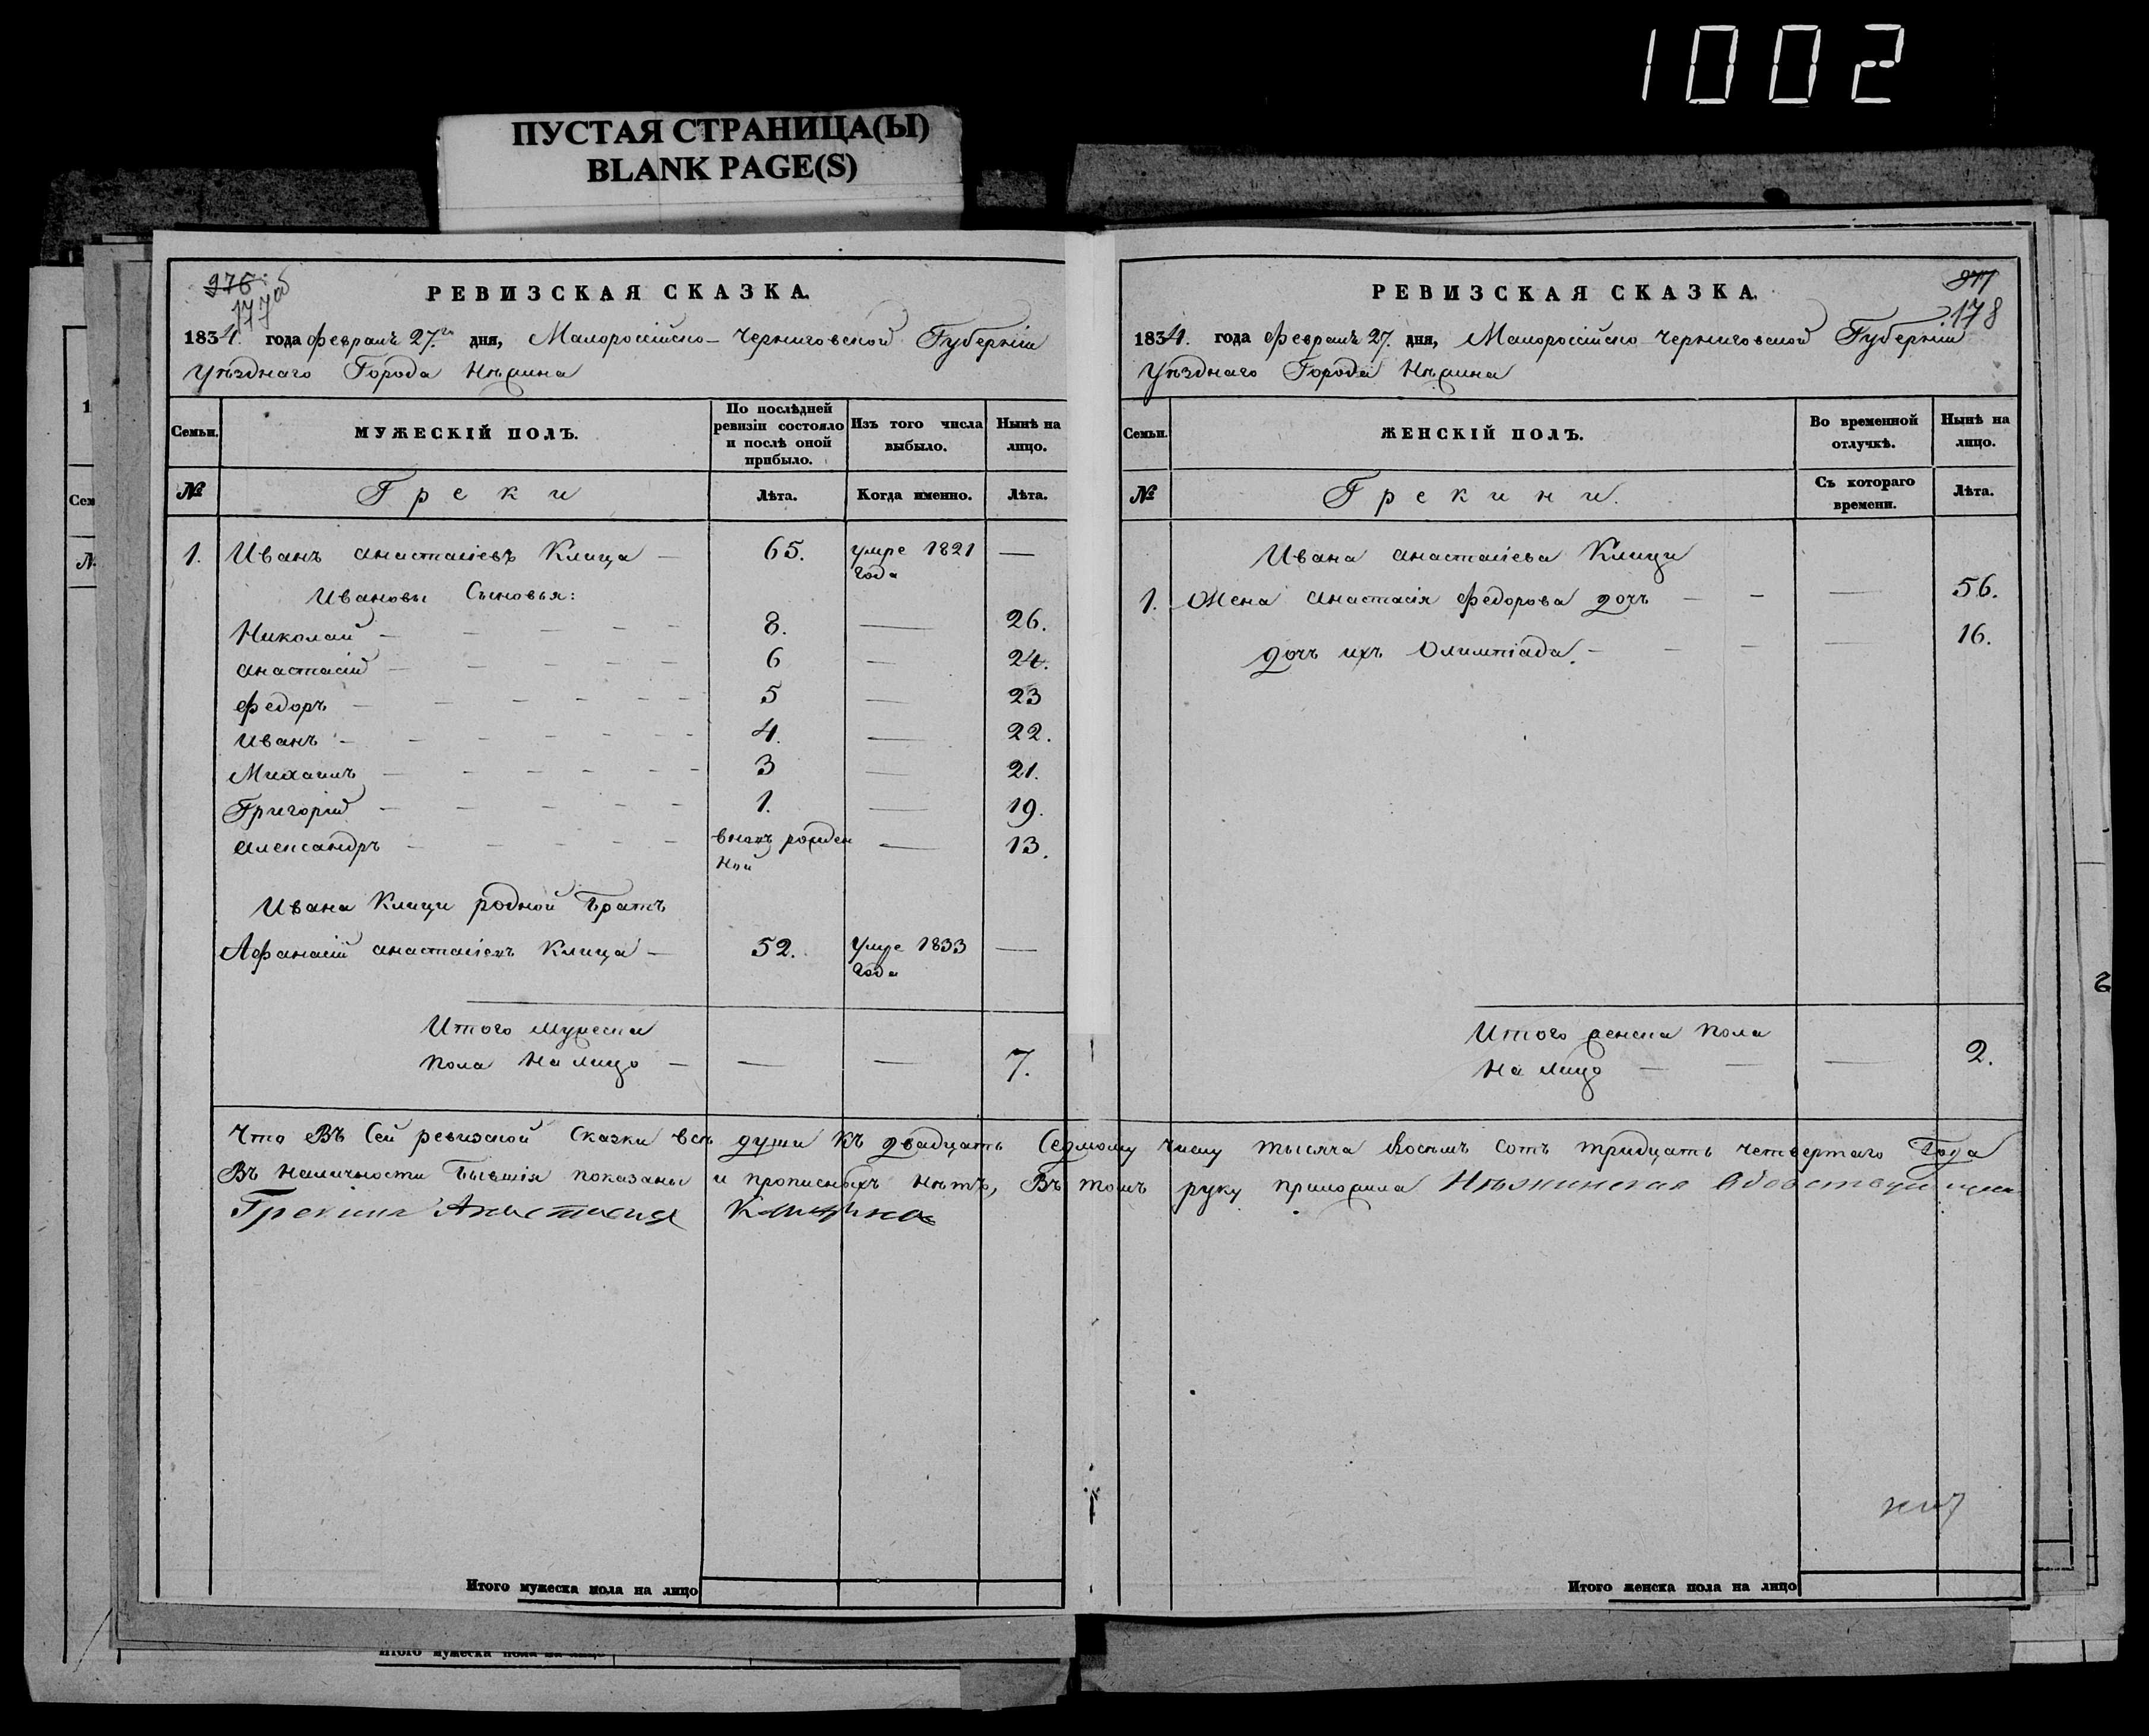 1002
ПУСТАЯ СТРАНИЦА(Ы)
BLANK PAGE(S)
976
177
РЕВИЗСКАЯ СКАЗКА.
1834. года февраля 27.го дня, Малоросійско-Черниговской Губерніи
Уѣзднаго Города Нѣжина
Семьи.
МУЖЕСКІЙ ПОЛЪ.
По послѣдней ревизіи состояло и послѣ оной прибыло.
Изъ того числа выбыло.
Нынѣ на лицо.
№
Греки
Лѣта.
Когда именно.
Лѣта.
1. Иванъ Анастасіевъ Клица — 65. умре 1821 года —
Ивановы Сыновья:
Николай — 8. — 26.
Анастасій — 6 — 24.
Федоръ — 5 — 23
Иванъ — 4. — 22.
Михаилъ — 3 — 21.
Григорій — 1. — 19.
Александръ — вновь рожден ной — 13.
Ивана Клици родной Братъ
Афанасій Анастасіевъ Клица — 52. Умре 1833 года —
Итого мужеска
пола на лицо — — — 7.
Итого мужеска пола на лицо
977
178
РЕВИЗСКАЯ СКАЗКА.
1834. года февраля 27. дня, Малороссійско-Черниговской Губерніи
Уѣзднаго Города Нѣжина
Семьи.
ЖЕНСКІЙ ПОЛЪ.
Во временной отлучкѣ.
Нынѣ на лицо.
№
Грекини.
Съ котораго времени.
Лѣта.
Ивана Анастасіева Клици
1. Жена Анастасія Федорова дочь — — — 56.
дочь ихъ Олимпіада. — — — 16.
Итого женска пола
на лицо — — — 2.
Что въ Сей ревизской Сказки всѣ души къ двадцать Седмому числу тысяча восемь сотъ тридцать четвертаго Года
Въ наличности бывшія показаны и прописныхъ нѣтъ, Въ томъ руку приложила Нѣжинская
Грекиня Анастасия
Итого женска пола на лицо
Итого мужеска пола на лицо